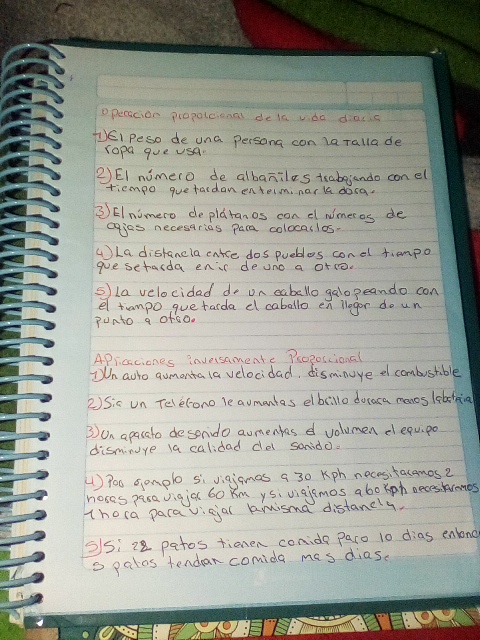 Operación proporcional de la vida diaria
1) El peso de una persona con la Talla de
ropa que usa.
2) El número de albañiles trabajando con el
tiempo que tardan en terminar la obra.
3) El número de plátanos con el números de
cajas necesarias para colocarlos.
4) La distancia entre dos pueblos con el tiempo
que se tarda en ir de uno a otro.
5) La velocidad de un caballo galopeando con
el tiempo que tarda el caballo en llegar de un
punto a otro.
Aplicaciones inversamente Proporcional
1) Un auto aumenta la velocidad, disminuye el combustible
2) Si a un Teléfono le aumentas el brillo durara menos la bateria
3) Un aparato de sonido aumentas el volumen el equipo
disminuye la calidad del sonido.
4) Por ejemplo si viajamos a 30 Kph necesitaremos 2
horas para viajar 60 Km y si viajamos a 60 Kph necesitaremos
1 hora para viajar la misma distancia.
5) Si 22 patos tienen comida para 10 dias entonc
5 patos tendran comida mas dias.